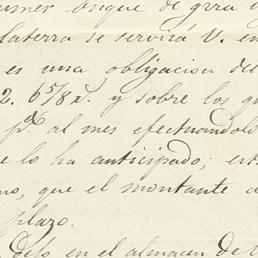 buque de gıra
laterra se servirá V. en
es una obligacion del
2. 6 5/8 d. y sobre los qu
p% al mes efectuandolo
e lo ha anticipado; est
no, que el montante d
plazo.
delo en el almacen de